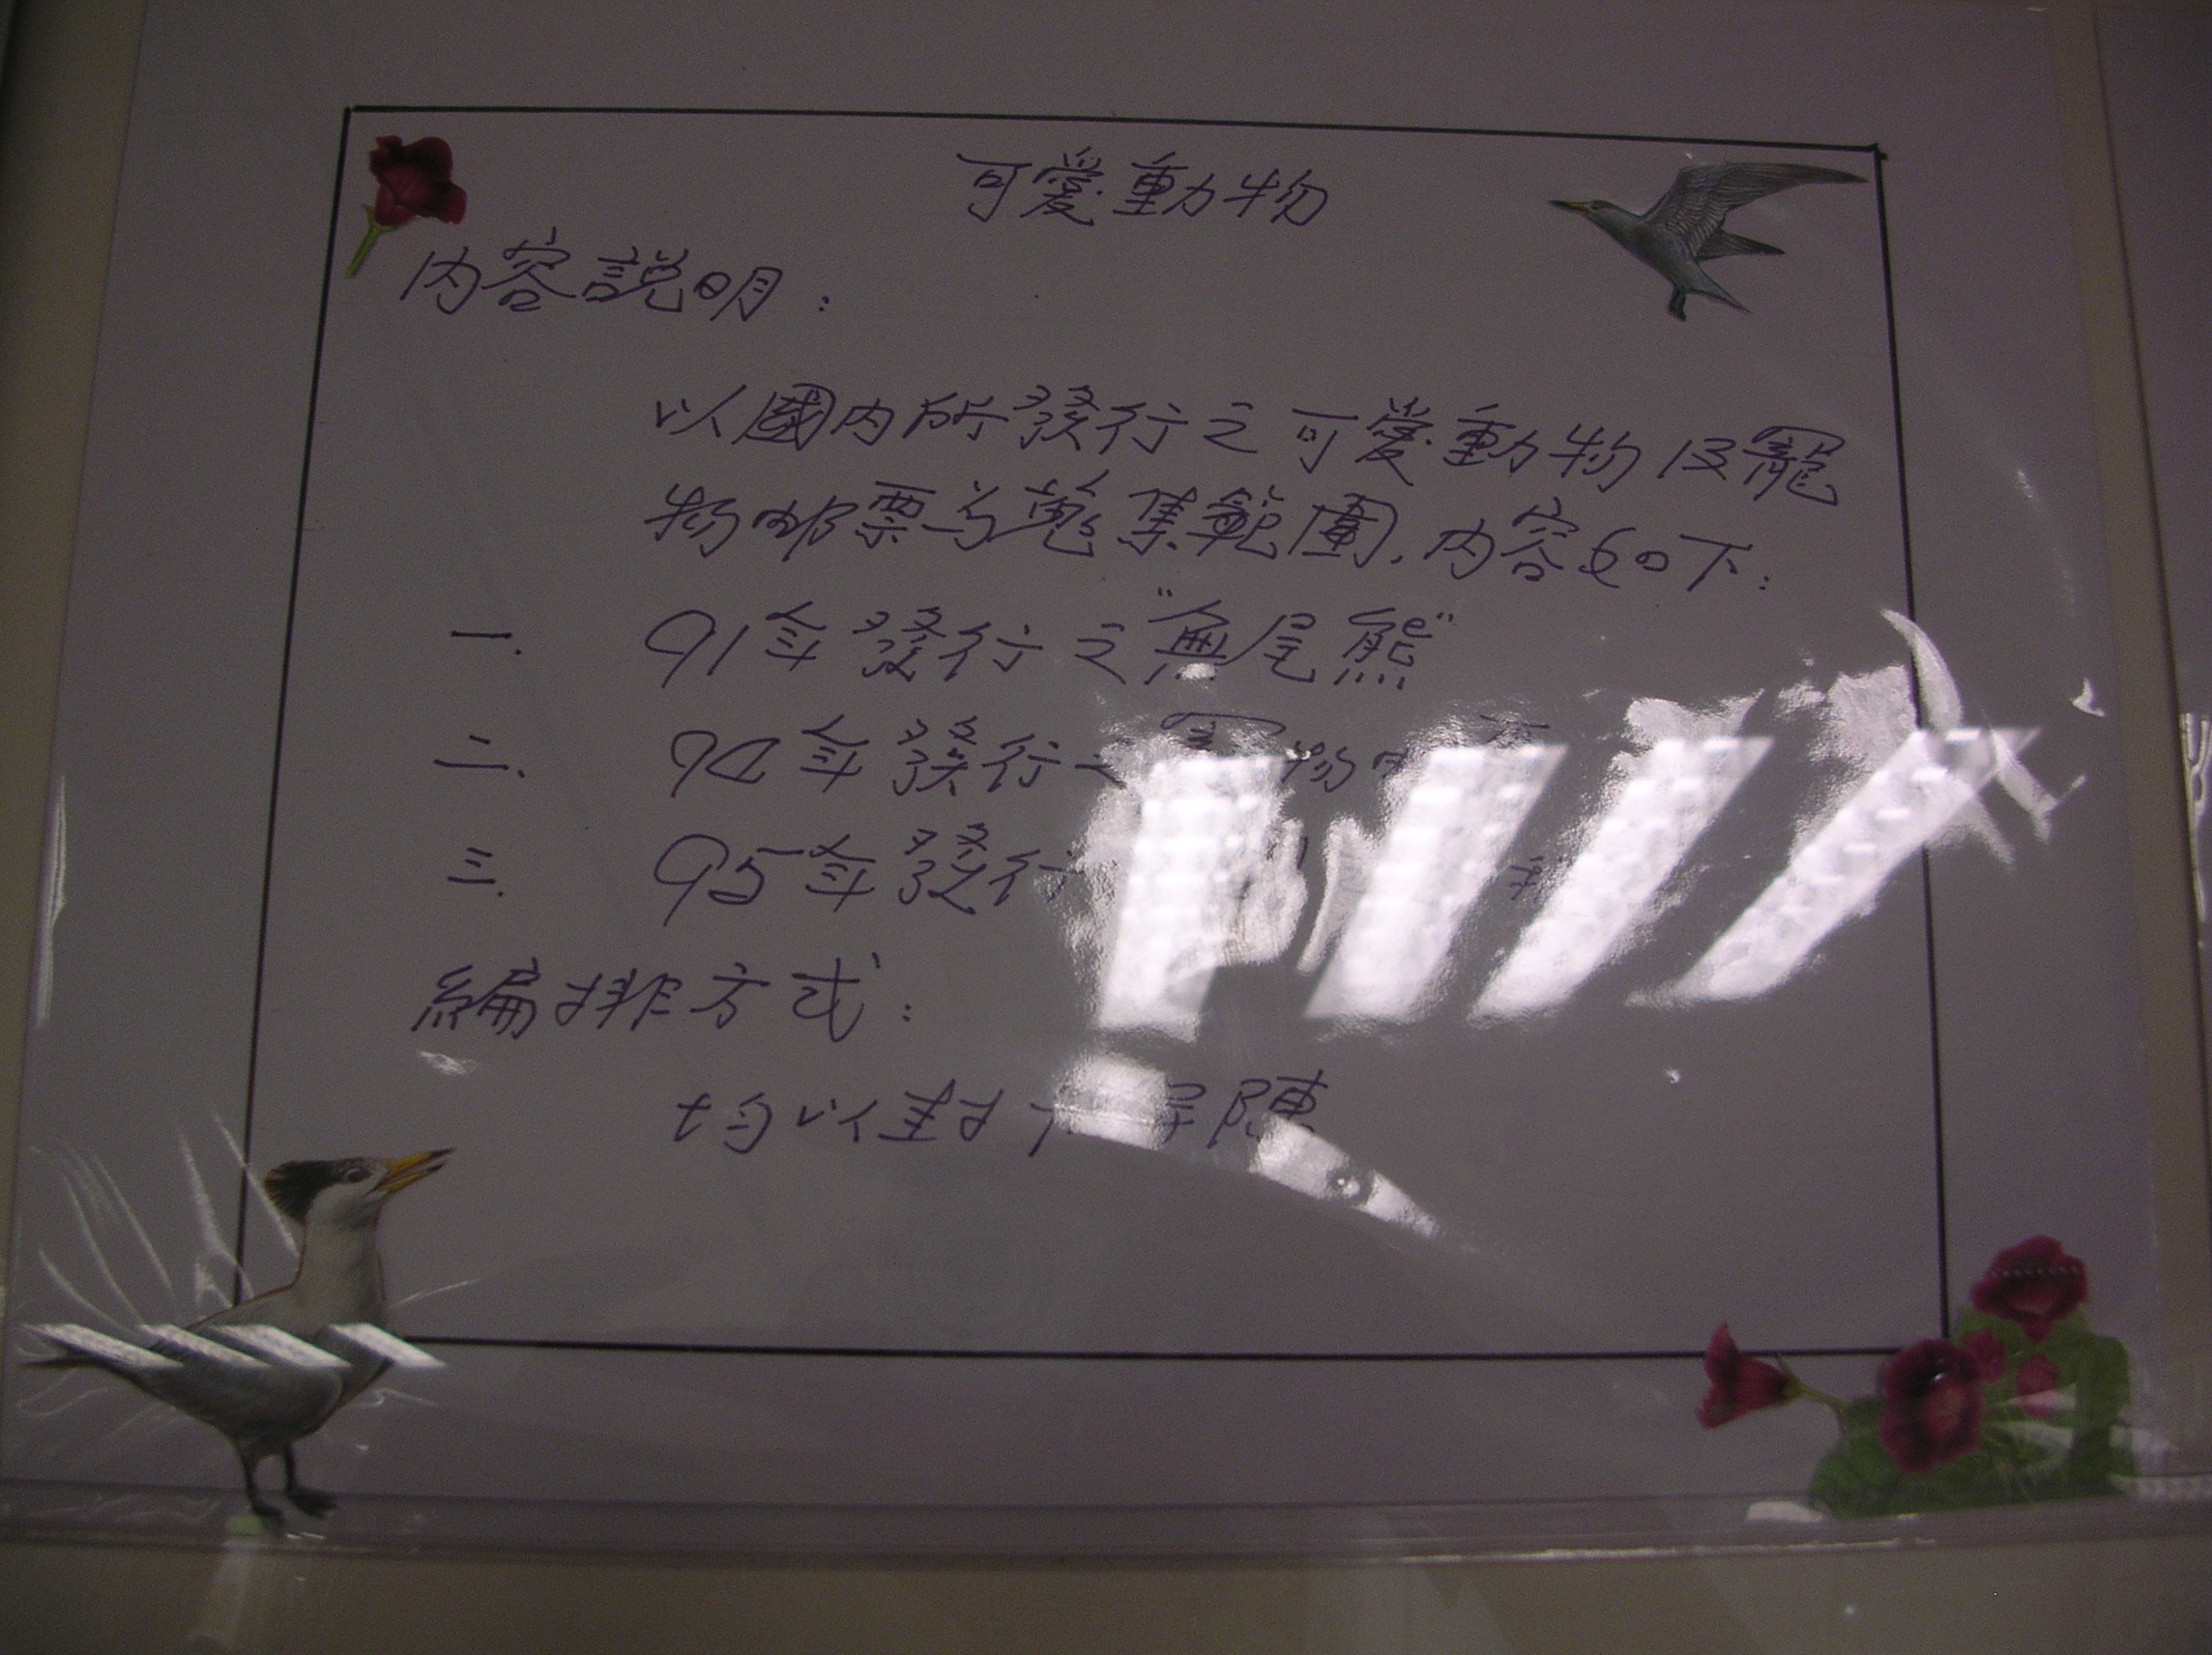 可愛動物
內容說明：
以國內所發行之可愛動物及寵
物郵票為蒐集範圍,內容如下：
一. 91年發行之"無尾熊"
二. 94年發行之 物
三. 95年發行
編排方式：
均以對 陳